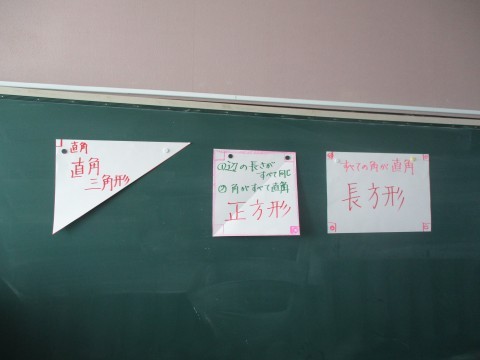 直角
直角
三角形
①辺の長さが
すべて同じ
②角がすべて直角
正方形
すべての角が直角
長方形